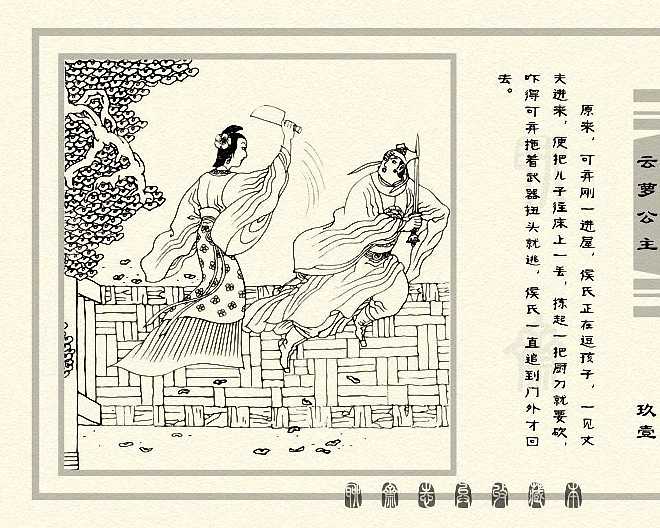 原来，可弃刚一进屋，侯氏正在逗孩子，一见丈
夫进来，便把儿子往床上一丢，操起一把厨刀就要砍，
吓得可弃拖着武器扭头就逃，侯氏一直追到门外才回
去。
云萝公主
玖壹
聊斋志异收藏本